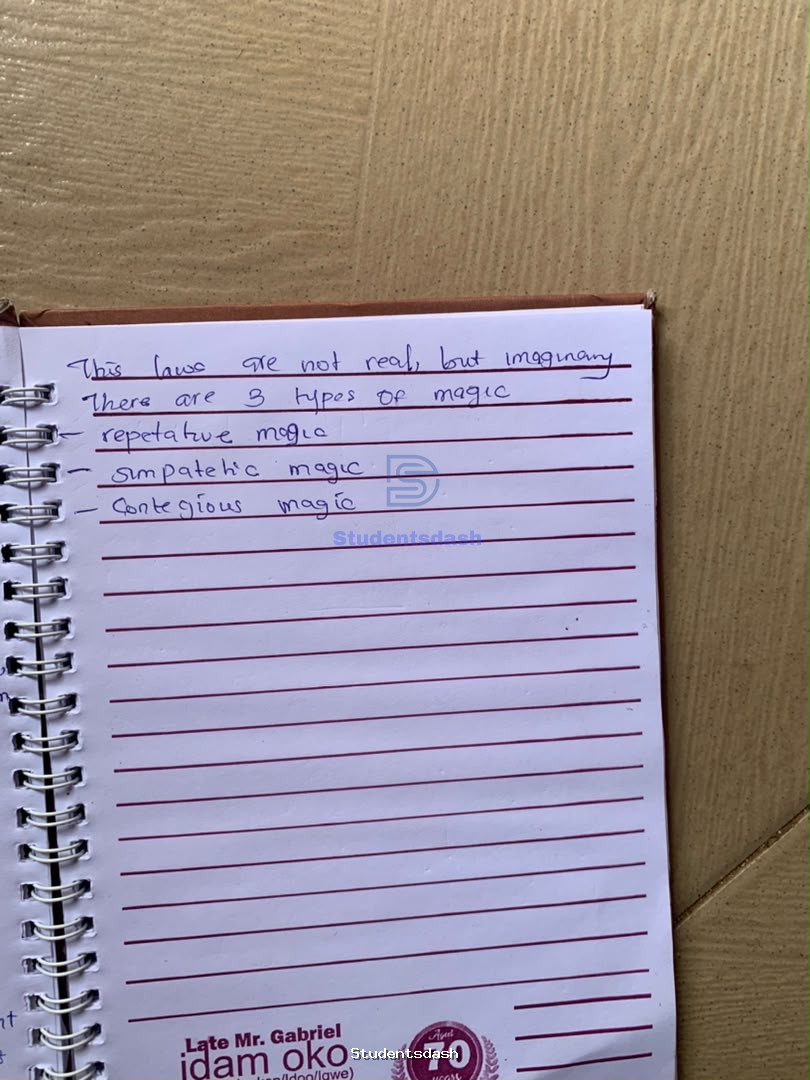 This laws are not real, but imaginary
There are 3 types of magic
- repetative magic
- simpatetic magic
- Contegious magic
Studentsdash
Late Mr. Gabriel
idam oko
Aged
70
years
Studentsdash